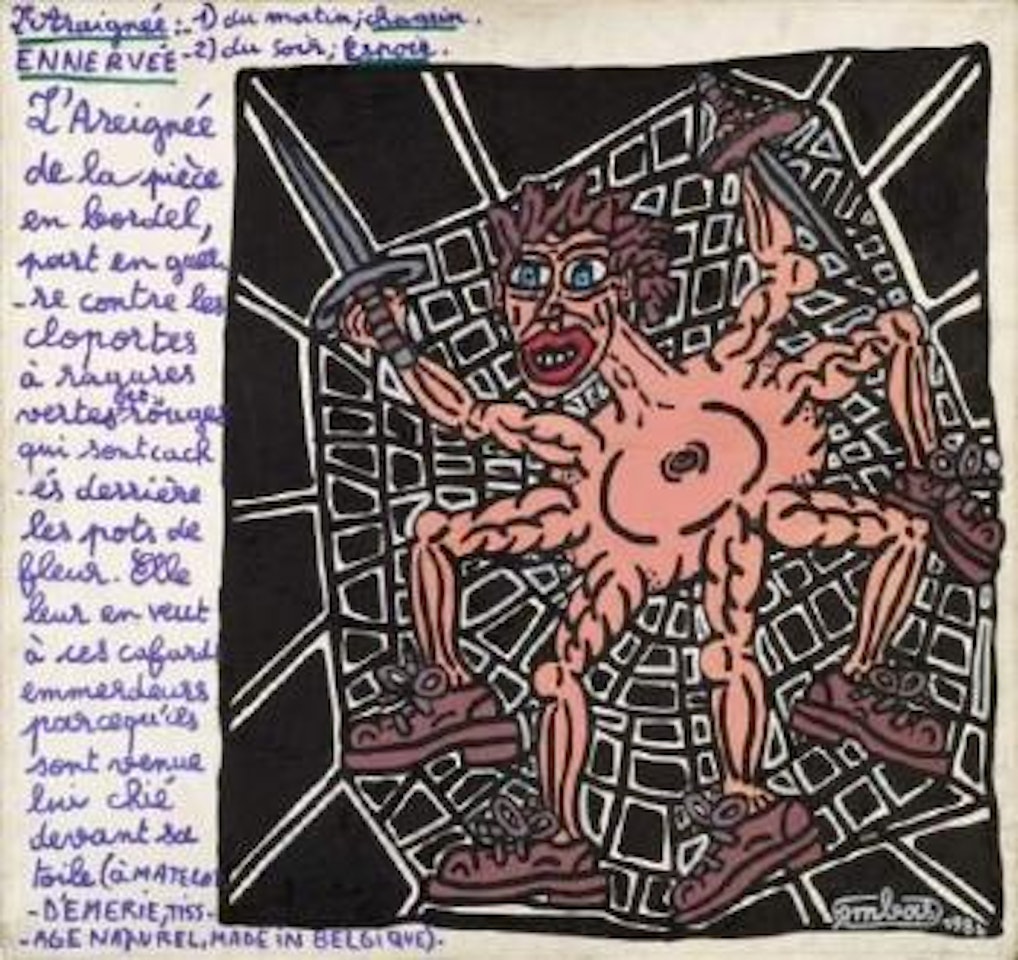 L'Araignée:-1) du matin; chagrin.
ENNERVÉE-2) du soir; Espoir.
L'Areignée
de la pièce
en bordel,
part en guér
-re contre les
cloportes
à rayures
vertes-rouges
qui sont cach
-és derrière
les pots de
fleur. Elle
leur en veut
à ces cafards
emmerdeurs
parcequ'ils
sont venue
lui chié
devant sa
toile (à MATELA
-D'EMERIE, TISS-
-AGE NATUREL, MADE IN BELGIQUE).
combas